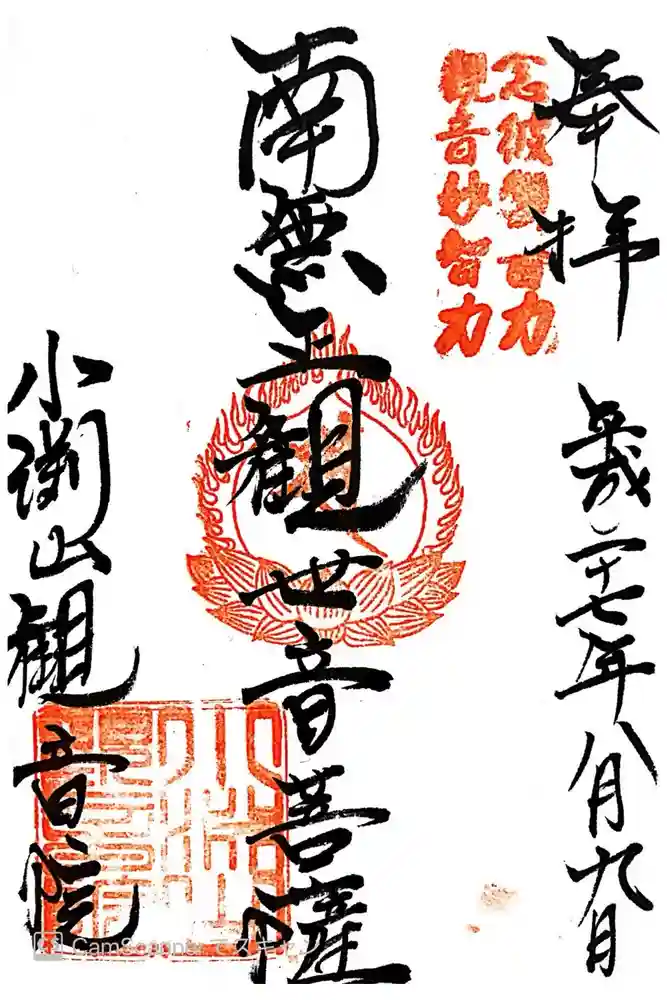 奉拝
平成二十七年八月九日
念彼観音力
観音妙智力
南無正観世音菩薩
小渕山観音院
CamScanner でスキャン